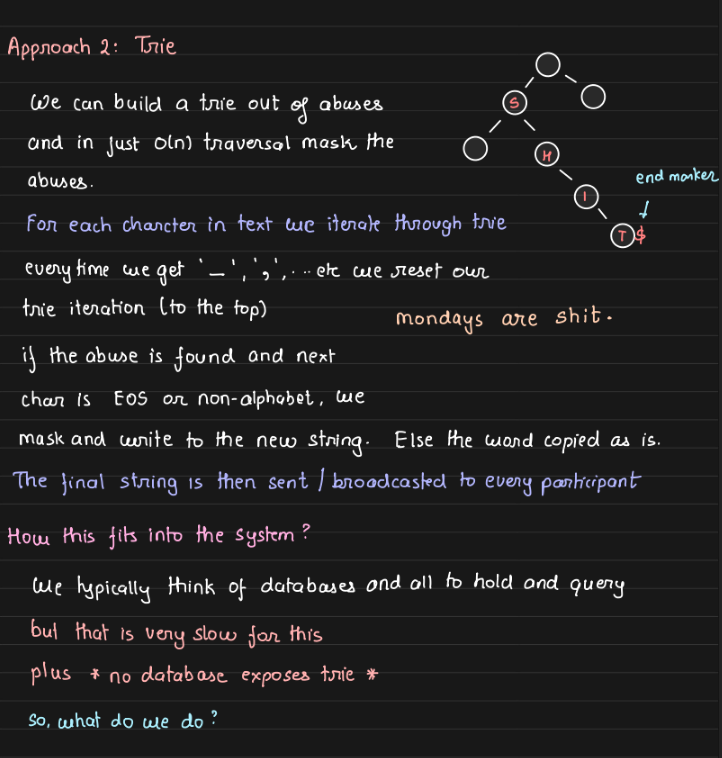 Approach 2: Trie
We can build a trie out of abuses
and in just O(n) traversal mask the
abuses.
S
H
I
T $
end marker
For each charcter in text we iterate through trie
everytime we get '_', ',', ... etc we reset our
trie iteration (to the top)
mondays are shit.
if the abuse is found and next
char is EOS or non-alphabet, we
mask and write to the new string. Else the word copied as is.
The final string is then sent / broadcasted to every participant
How this fits into the system?
We typically think of databases and all to hold and query
but that is very slow for this
plus * no database exposes trie *
So, what do we do?